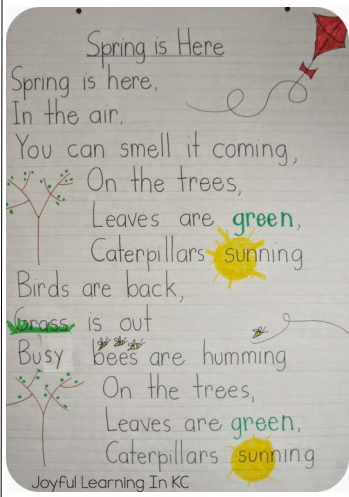 Spring is Here
Spring is here,
In the air.
You can smell it coming,
On the trees,
Leaves are green,
Caterpillars sunning
Birds are back,
Grass is out
Busy bees are humming
On the trees,
Leaves are green,
Caterpillars sunning
Joyful Learning In KC